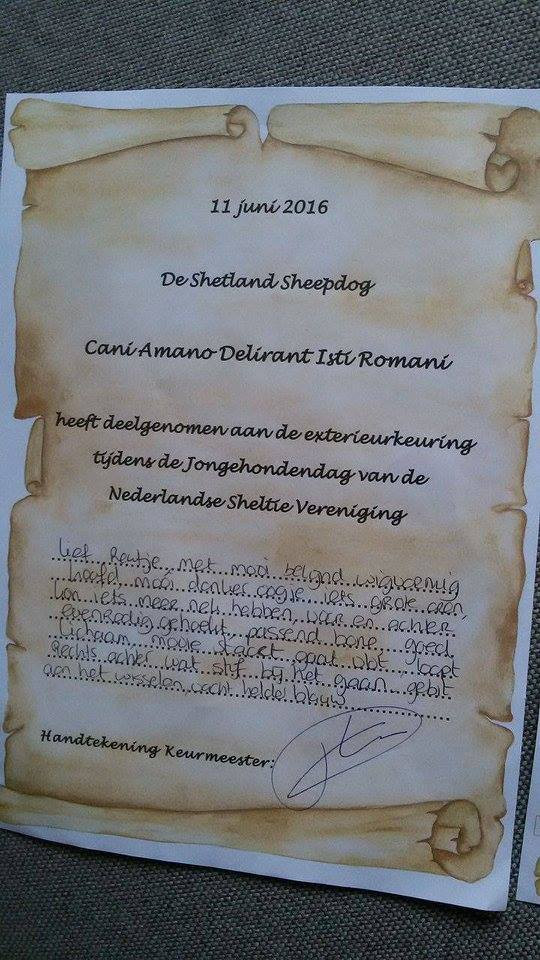 11 juni 2016
De Shetland Sheepdog
Cani Amano Delirant Isti Romani
heeft deelgenomen aan de exterieurkeuring
tijdens de Jongehondendag van de
Nederlandse Sheltie Vereniging
lief Reutje, met mooi belijnd wigvormig
hoofd mooi donker oogje iets grote oren,
kon iets meer nek hebben, voor en achter
evenredig gehoekt, passend bone, goed
lichaam mooie staart gaat vlot, loopt
rechts achter wat stijf bij het gaan, gebit
aan het wisselen, vacht helder blauw
Handtekening Keurmeester: